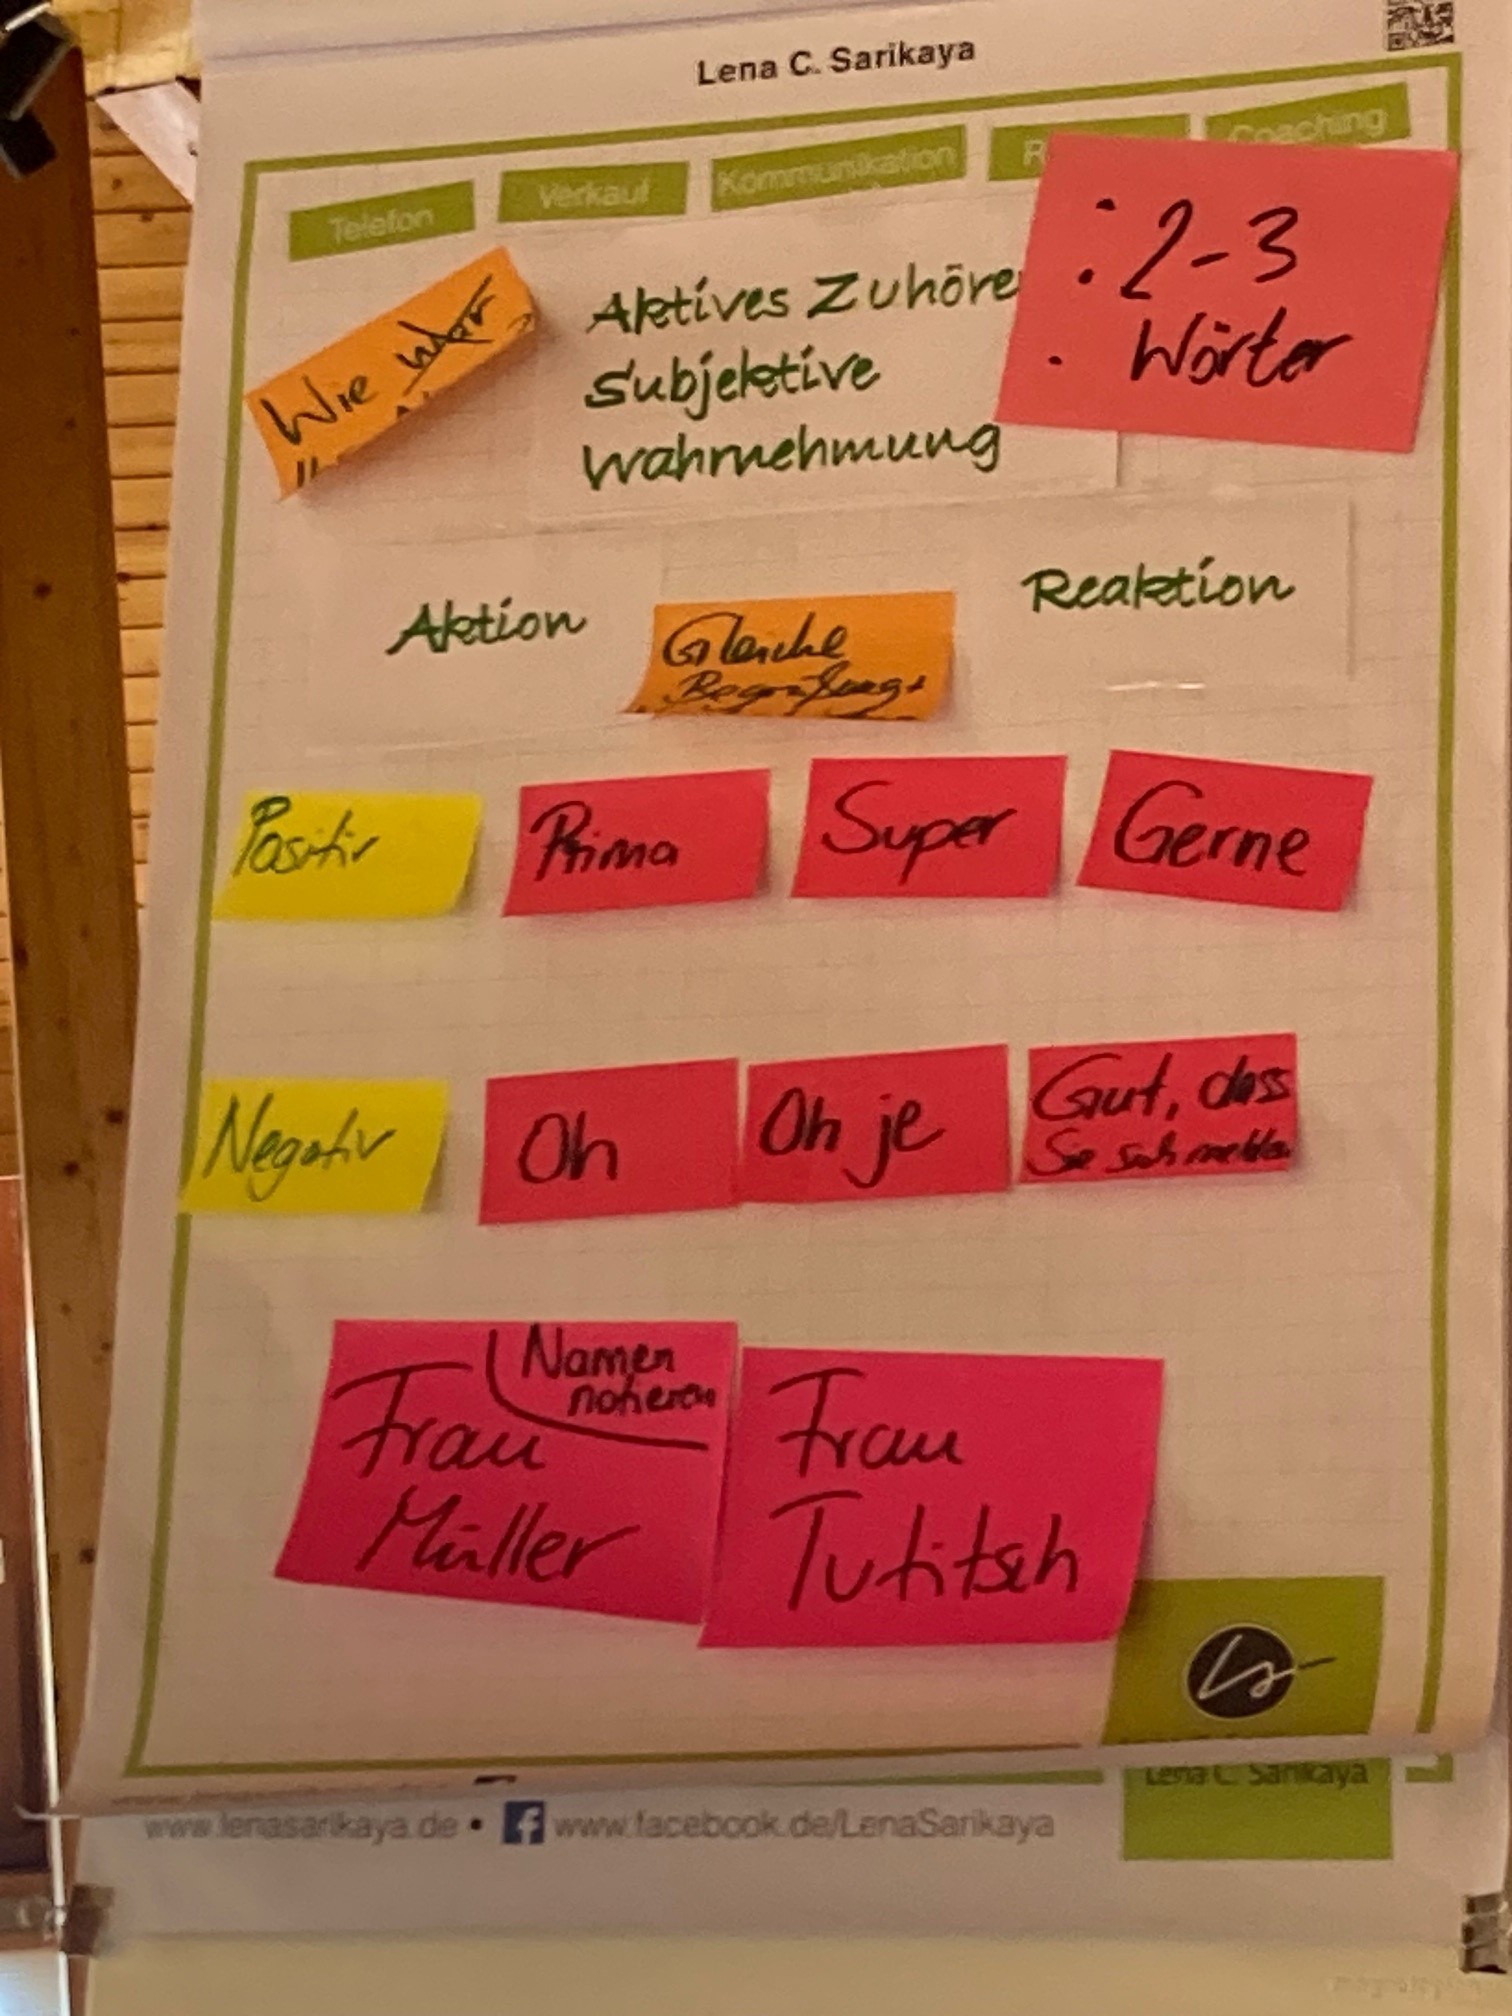 Lena C. Sarikaya
Telefon
Verkauf
Kommunikation
R
Coaching
Wie war
Aktives Zuhöre
Subjektive
Wahrnehmung
: 2-3
. Wörter
Aktion
Gleiche
Begrüßung
Reaktion
Positiv
Prima
Super
Gerne
Negativ
Oh
Oh je
Gut, dass
Sie sich melden
Namen
notieren
Frau
Müller
Frau
Tutitsch
Lena C. Sarikaya
www.lenasarikaya.de • www.facebook.de/LenaSarikaya